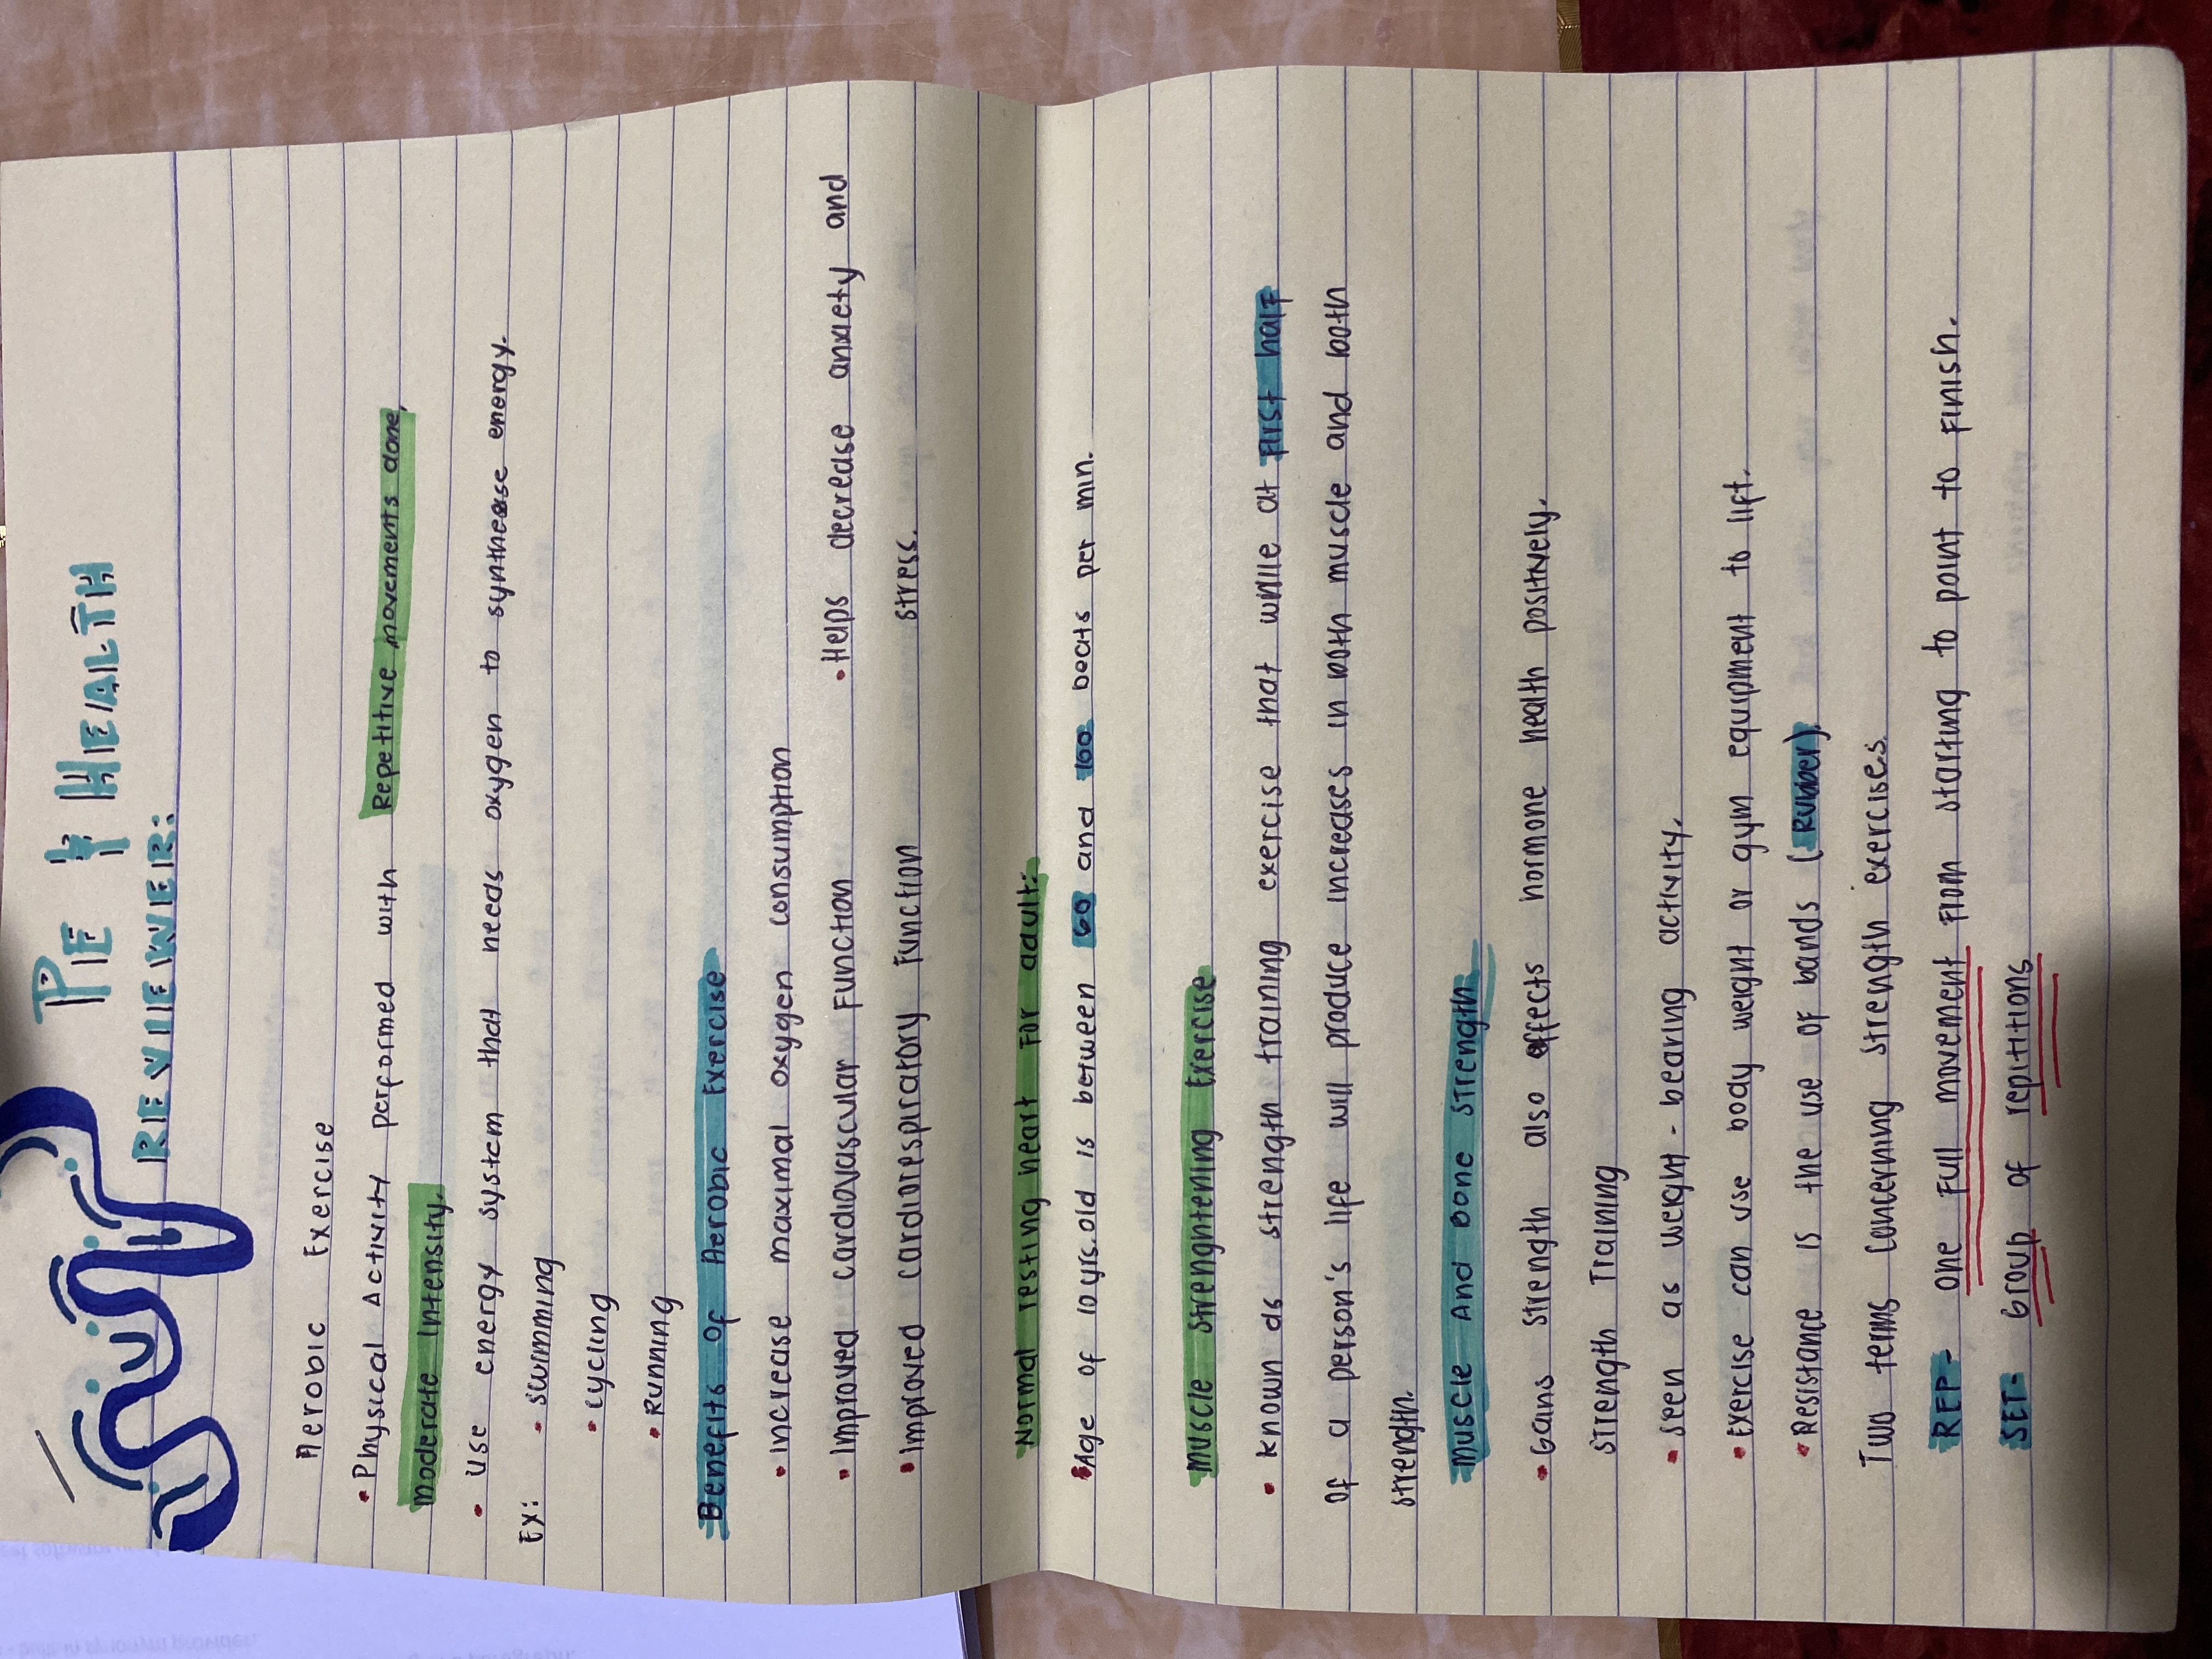 PE & HEALTH
REVIEWER:
Aerobic Exercise
• Physical Activity performed with Repetitive movements done,
moderate intensity.
• Use energy system that needs oxygen to synthease energy.
Ex: • swimming
• cycling
• Running
Benefits of Aerobic Exercise
• Increase maximal oxygen consumption
• Improved cardiovascular Function • Helps decrease anxiety and
• Improved cardiorespiratory Function stress.
Normal resting heart For adult:
• Age of 10 yrs. old is between 60 and 100 beats per min.
Muscle Strenghtening Exercise
• Known as strength training exercise that while at First half
of a person's life will produce increases in both muscle and both
strength.
Muscle And Bone Strength
• Gains strength also effects hormone health positively.
Strength Training
• Seen as weight - bearing activity.
• Exercise can use body weight or gym equipment to lift.
• Resistance is the use of bands (Rubber).
Two terms concerning strength exercises.
REP- one full movement from starting to point to finish.
SET- Group of repititions